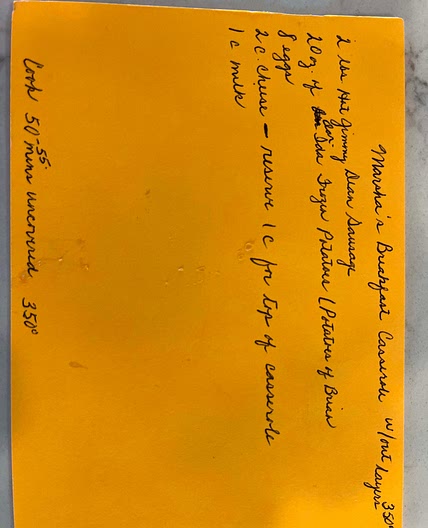 Marsha's Breakfast Casserole w/out layers 350°
2 lbs Hot Jimmy Dean Sausage
20 oz. of Ore Ida Frozen Potatoes (Potatoes of Brian
8 eggs
2 c. cheese – reserve 1 c for top of casserole
1 c milk
Cook 50-55 mins uncovered 350°